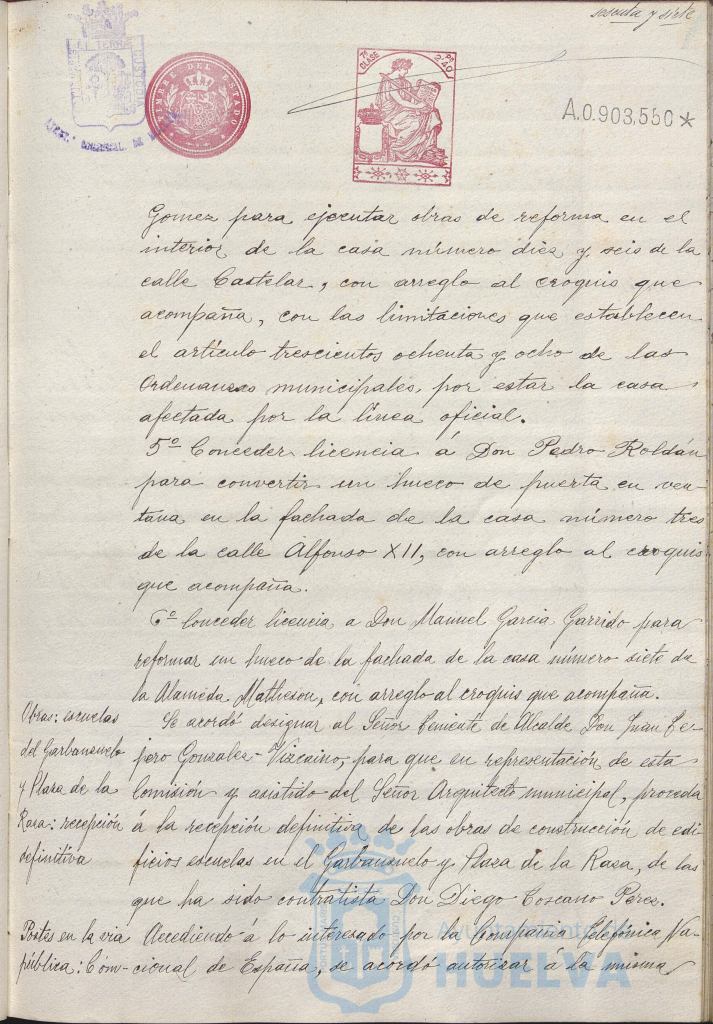 sesenta y siete
TIMBRE DEL ESTADO
7ª CLASE
2'40
A.0.903,550*
Gomez para ejecutar obras de reforma en el
interior de la casa número diez y seis de la
calle Castelar, con arreglo al croquis que
acompaña, con las limitaciones que establecen
el artículo trescientos ochenta y ocho de las
Ordenanzas municipales, por estar la casa
afectada por la línea oficial.
5º Conceder licencia á Don Pedro Roldán
para convertir un hueco de puerta en ven-
tana en la fachada de la casa número tres
de la calle Alfonso XII, con arreglo al croquis
que acompaña.
6º Conceder licencia a Don Manuel Garcia Garrido para
reformar un hueco de la fachada de la casa número siete de
la Alameda Matheson, con arreglo al croquis que acompaña.
Obras: escuelas
del Garbanzuelo
y Plaza de la
Raza: recepción
definitiva
Se acordó designar al Señor Teniente de Alcalde Don Juan Ce-
pero Gonzalez-Vizcaino, para que en representación de esta
Comisión y asistido del Señor Arquitecto municipal, proceda
á la recepción definitiva de las obras de construcción de edi-
ficios escuelas en el Garbanzuelo y Plaza de la Raza, de las
que ha sido contratista Don Diego Toscano Perez.
Postes en la via
pública: Com-
Accediendo á lo interesado por la Compañia Telefónica Na-
cional de España, se acordó autorizar á la misma
Ayuntamiento de
HUELVA